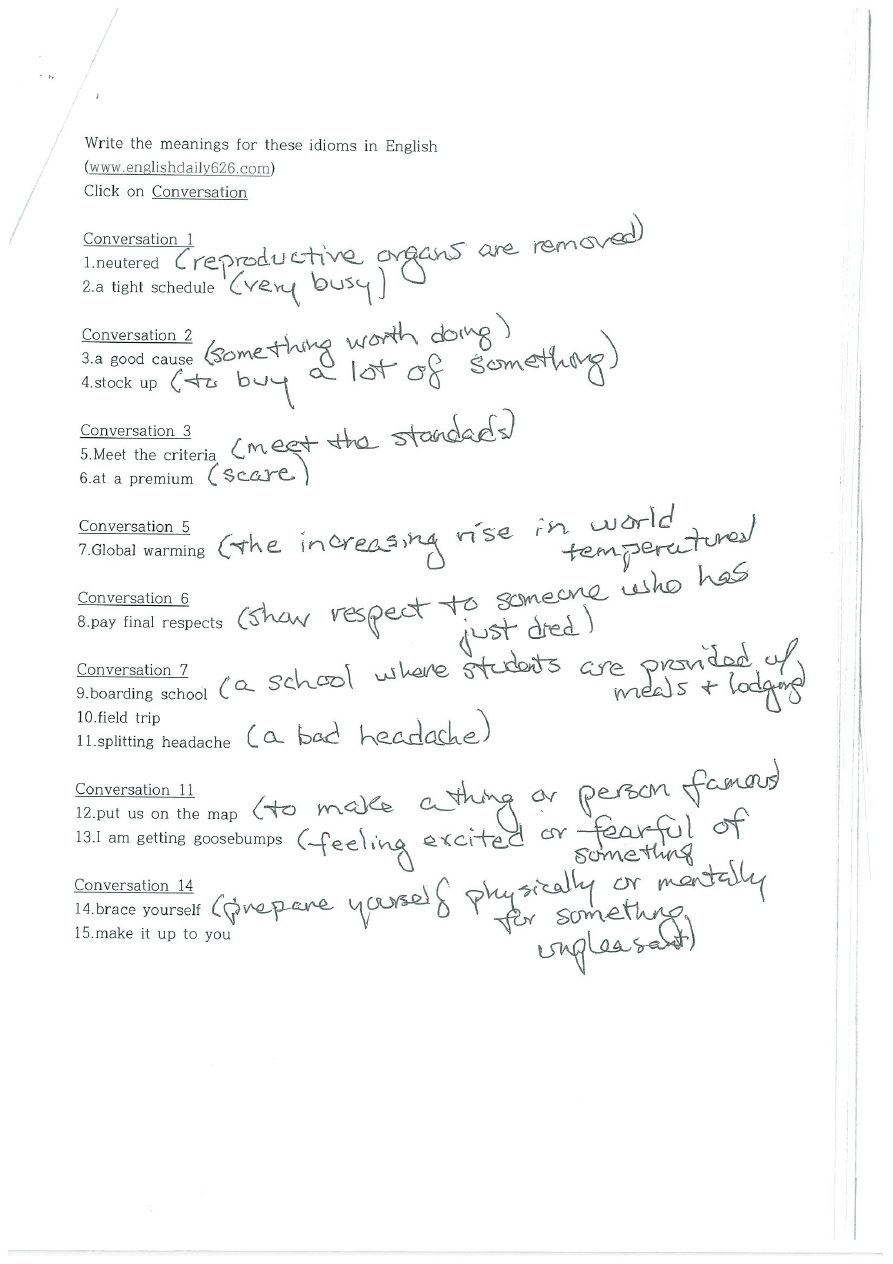 Write the meanings for these idioms in English
(www.englishdaily626.com)
Click on Conversation
Conversation 1
1.neutered (reproductive organs are removed)
2.a tight schedule (very busy)
Conversation 2
3.a good cause (something worth doing)
4.stock up (to buy a lot of something)
Conversation 3
5.Meet the criteria (meet the standads)
6.at a premium (scare)
Conversation 5
7.Global warming (the increasing rise in world
temperatures)
Conversation 6
8.pay final respects (show respect to someone who has
just died)
Conversation 7
9.boarding school (a school where students are provided w/
meals + lodging)
10.field trip
11.splitting headache (a bad headache)
Conversation 11
12.put us on the map (to make a thing or person famous)
13.I am getting goosebumps (feeling excited or fearful of
something
Conversation 14
14.brace yourself (prepare yourself physically or mentally
for something
15.make it up to you
unpleasant)